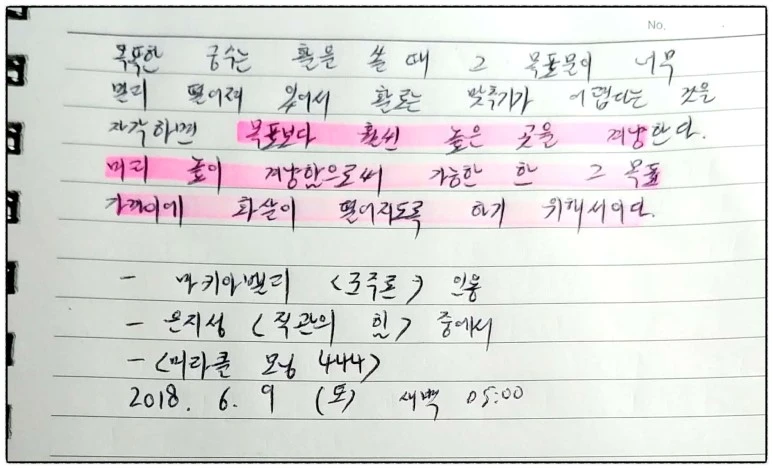 No.
똑똑한 궁수는 활을 쏠 때 그 목표물이 너무
멀리 떨어져 있어서 활로는 맞추기가 어렵다는 것을
자각하면 목표보다 훨씬 높은 곳을 겨냥한다.
머리 높이 겨냥함으로써 가능한 한 그 목표
가까이에 화살이 떨어지도록 하기 위해서이다.
- 마키아벨리 <군주론> 인용
- 은지성 <직관의 힘> 중에서
- <미라클 모닝 444>
2018. 6. 9 (토) 새벽 05:00